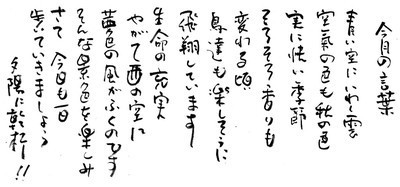 今月の言葉
青い空にいわし雲
空氣の色も秋の色
実に快い季節
そろそろ香りも
変わる頃
鳥達も楽しそうに
飛翔しています
生命の充実
やがて西の空に
茜色の風がふくのです
そんな景色を楽しみ
さて 今日も一日
歩いていきましょう
夕陽に乾杯!!